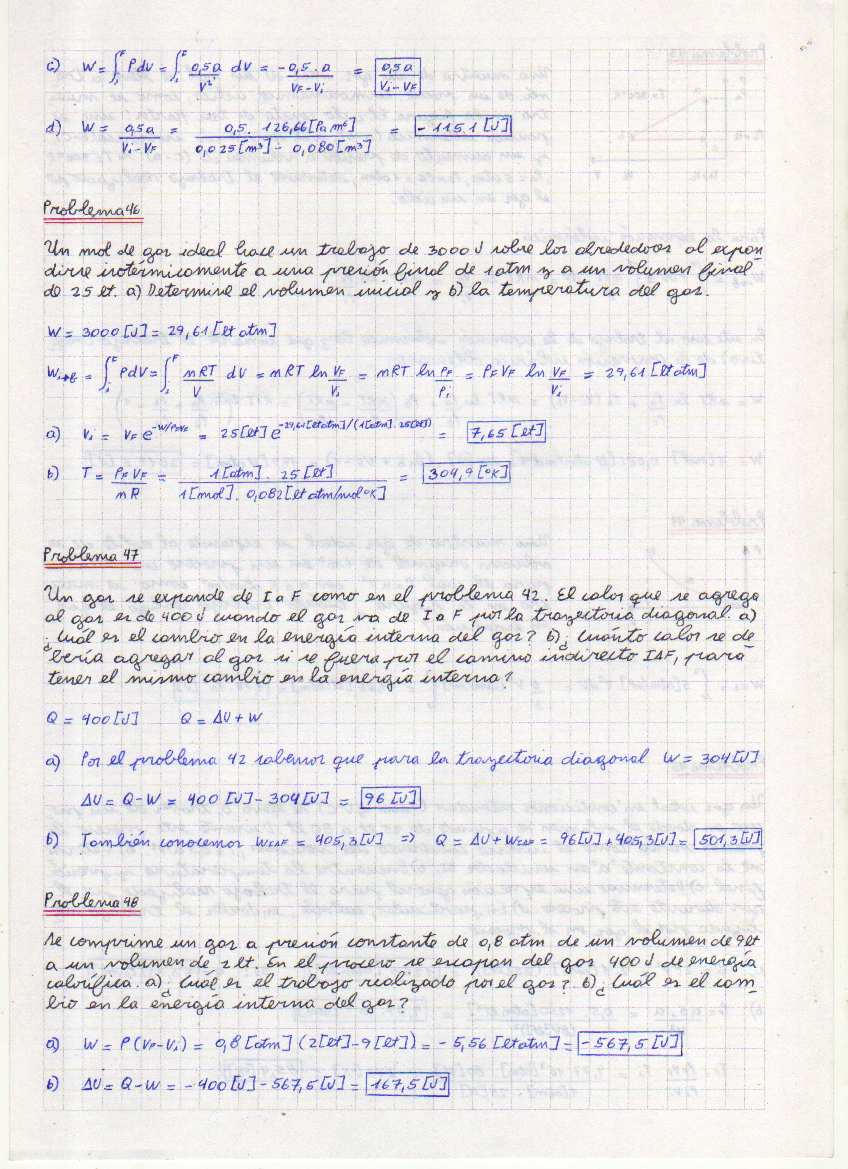 c) W = ∫ᵢᶠ PdV = ∫ᵢᶠ 0,5a/V² dV = -0,5.a/(VF-Vi) = 0,5a/(Vi-VF)
d) W = 0,5a/(Vi-VF) = 0,5. 126,66[Pa m⁶]/(0,025[m³] - 0,080[m³]) = -1151[J]
Problema 46
Un mol de gas ideal hace un trabajo de 3000 J sobre los alrededores al expan-
dirse isotérmicamente a una presión final de 1 atm y a un volumen final
de 25 lt. a) Determine el volumen inicial y b) la temperatura del gas.
W = 3000[J] = 29,61[lt atm]
Wi→f = ∫ᵢᶠ PdV = ∫ᵢᶠ nRT/V dV = nRT ln VF/Vi = nRT ln PF/Pi = PFVF ln VF/Vi = 29,61[lt atm]
a) Vi = VF e^-W/PFVF = 25[lt] e^-29,61[lt atm]/(1[atm].25[lt]) = 7,65[lt]
b) T = PFVF/nR = 1[atm]. 25[lt]/(1[mol]. 0,082[lt atm/mol°K]) = 304,9[°K]
Problema 47
Un gas se expande de I a F como en el problema 42. El calor que se agrega
al gas es de 400 J cuando el gas va de I a F por la trayectoria diagonal. a)
¿Cuál es el cambio en la energía interna del gas? b)¿ Cuánto calor se de-
bería agregar al gas si se fuera por el camino indirecto IAF, para
tener el mismo cambio en la energía interna?
Q = 400[J] Q = ΔU + W
a) Por el problema 42 sabemos que para la trayectoria diagonal W = 304[J]
ΔU = Q - W = 400[J] - 304[J] = 96[J]
b) También conocemos WIAF = 405,3[J] => Q = ΔU + WIAF = 96[J] + 405,3[J] = 501,3[J]
Problema 48
Se comprime un gas a presión constante de 0,8 atm de un volumen de 9 lt
a un volumen de 2 lt. En el proceso se escapan del gas 400 J de energía
calorífica. a)¿ Cuál es el trabajo realizado por el gas? b)¿ Cuál es el cam-
bio en la energía interna del gas?
a) W = P(VF-Vi) = 0,8[atm] (2[lt]-9[lt]) = -5,56[lt atm] = -567,5[J]
b) ΔU = Q - W = -400[J] - 567,5[J] = 167,5[J]